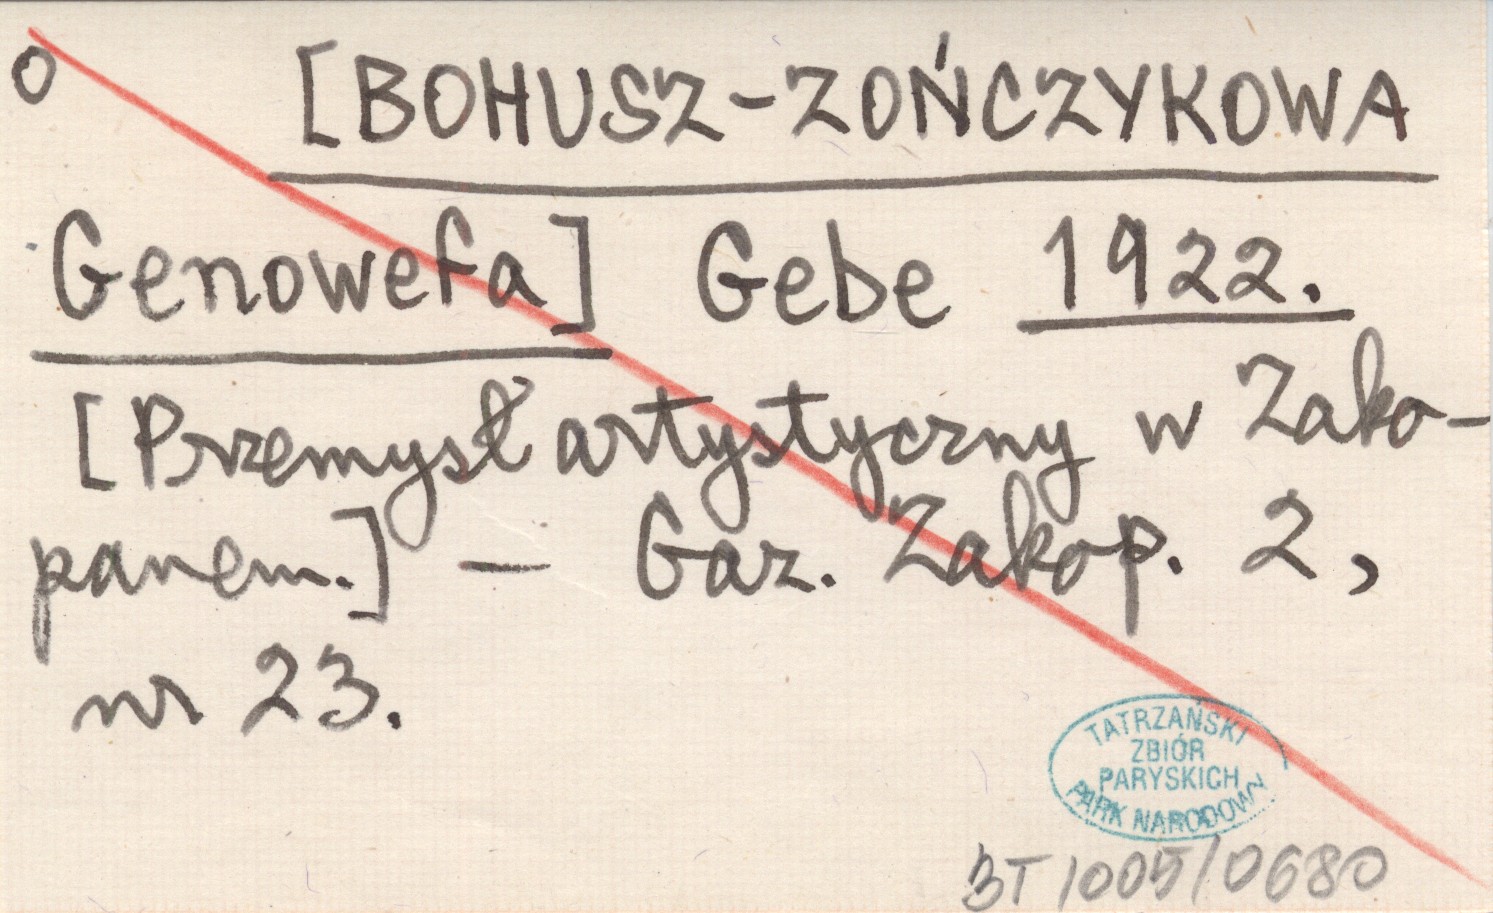 o [BOHUSZ-ZOŃCZYKOWA
Genowefa] Gebe 1922.
[Przemysł artystyczny w Zako-
panem.] - Gaz. Zakop. 2,
nr 23.
TATRZAŃSKI
ZBIÓR
PARYSKICH
PARK NARODOWY
BT/005/0680